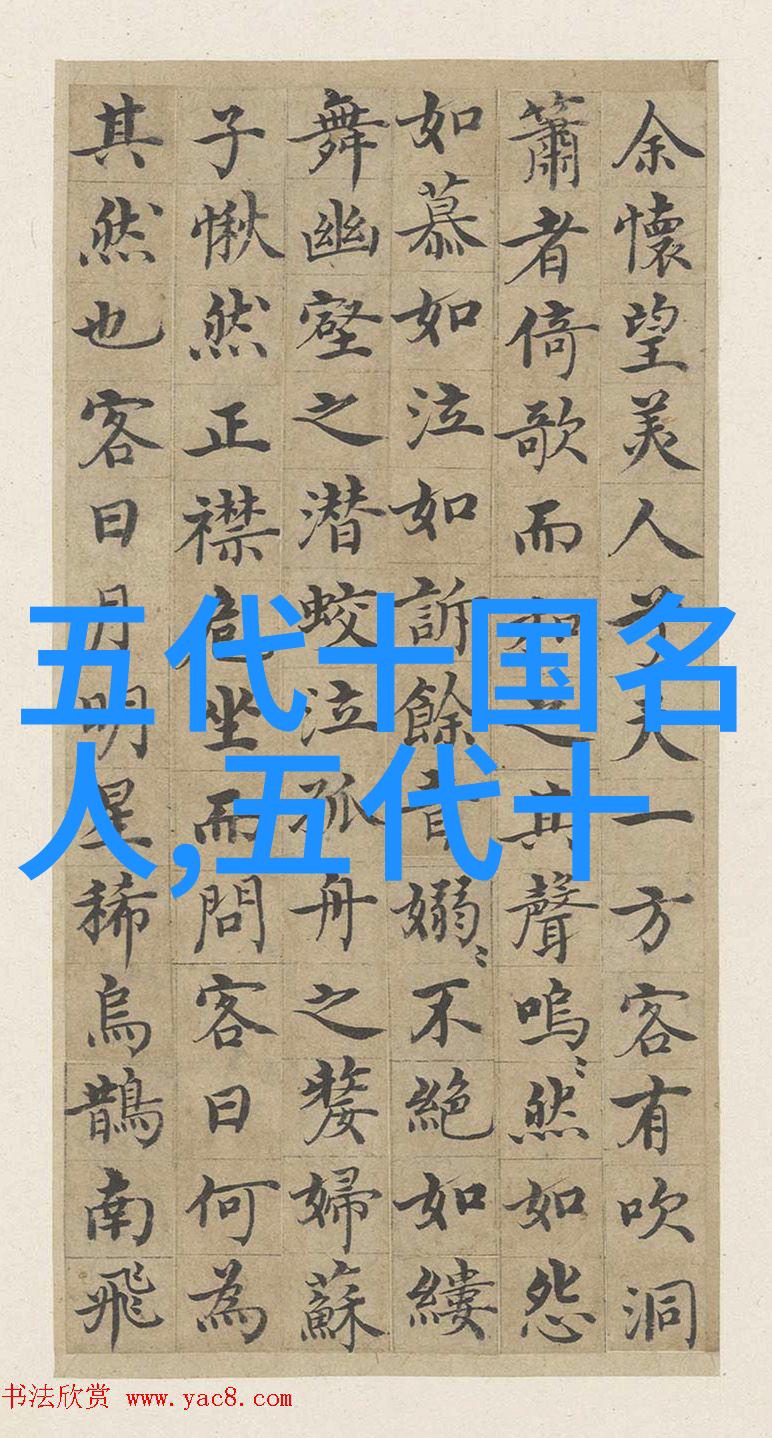 余懷望美人兮天一方客有吹洞
簫者倚歌而和之其聲嗚〻然如怨
如慕如泣如訴餘音嫋〻不絶如縷
舞幽壑之潜蛟泣孤舟之嫠婦蘇
子愀然正襟危坐而問客曰何為
其然也客曰月明星稀烏鵲南飛
五代十国名
人,五代十
书法欣赏 www.yac8.com